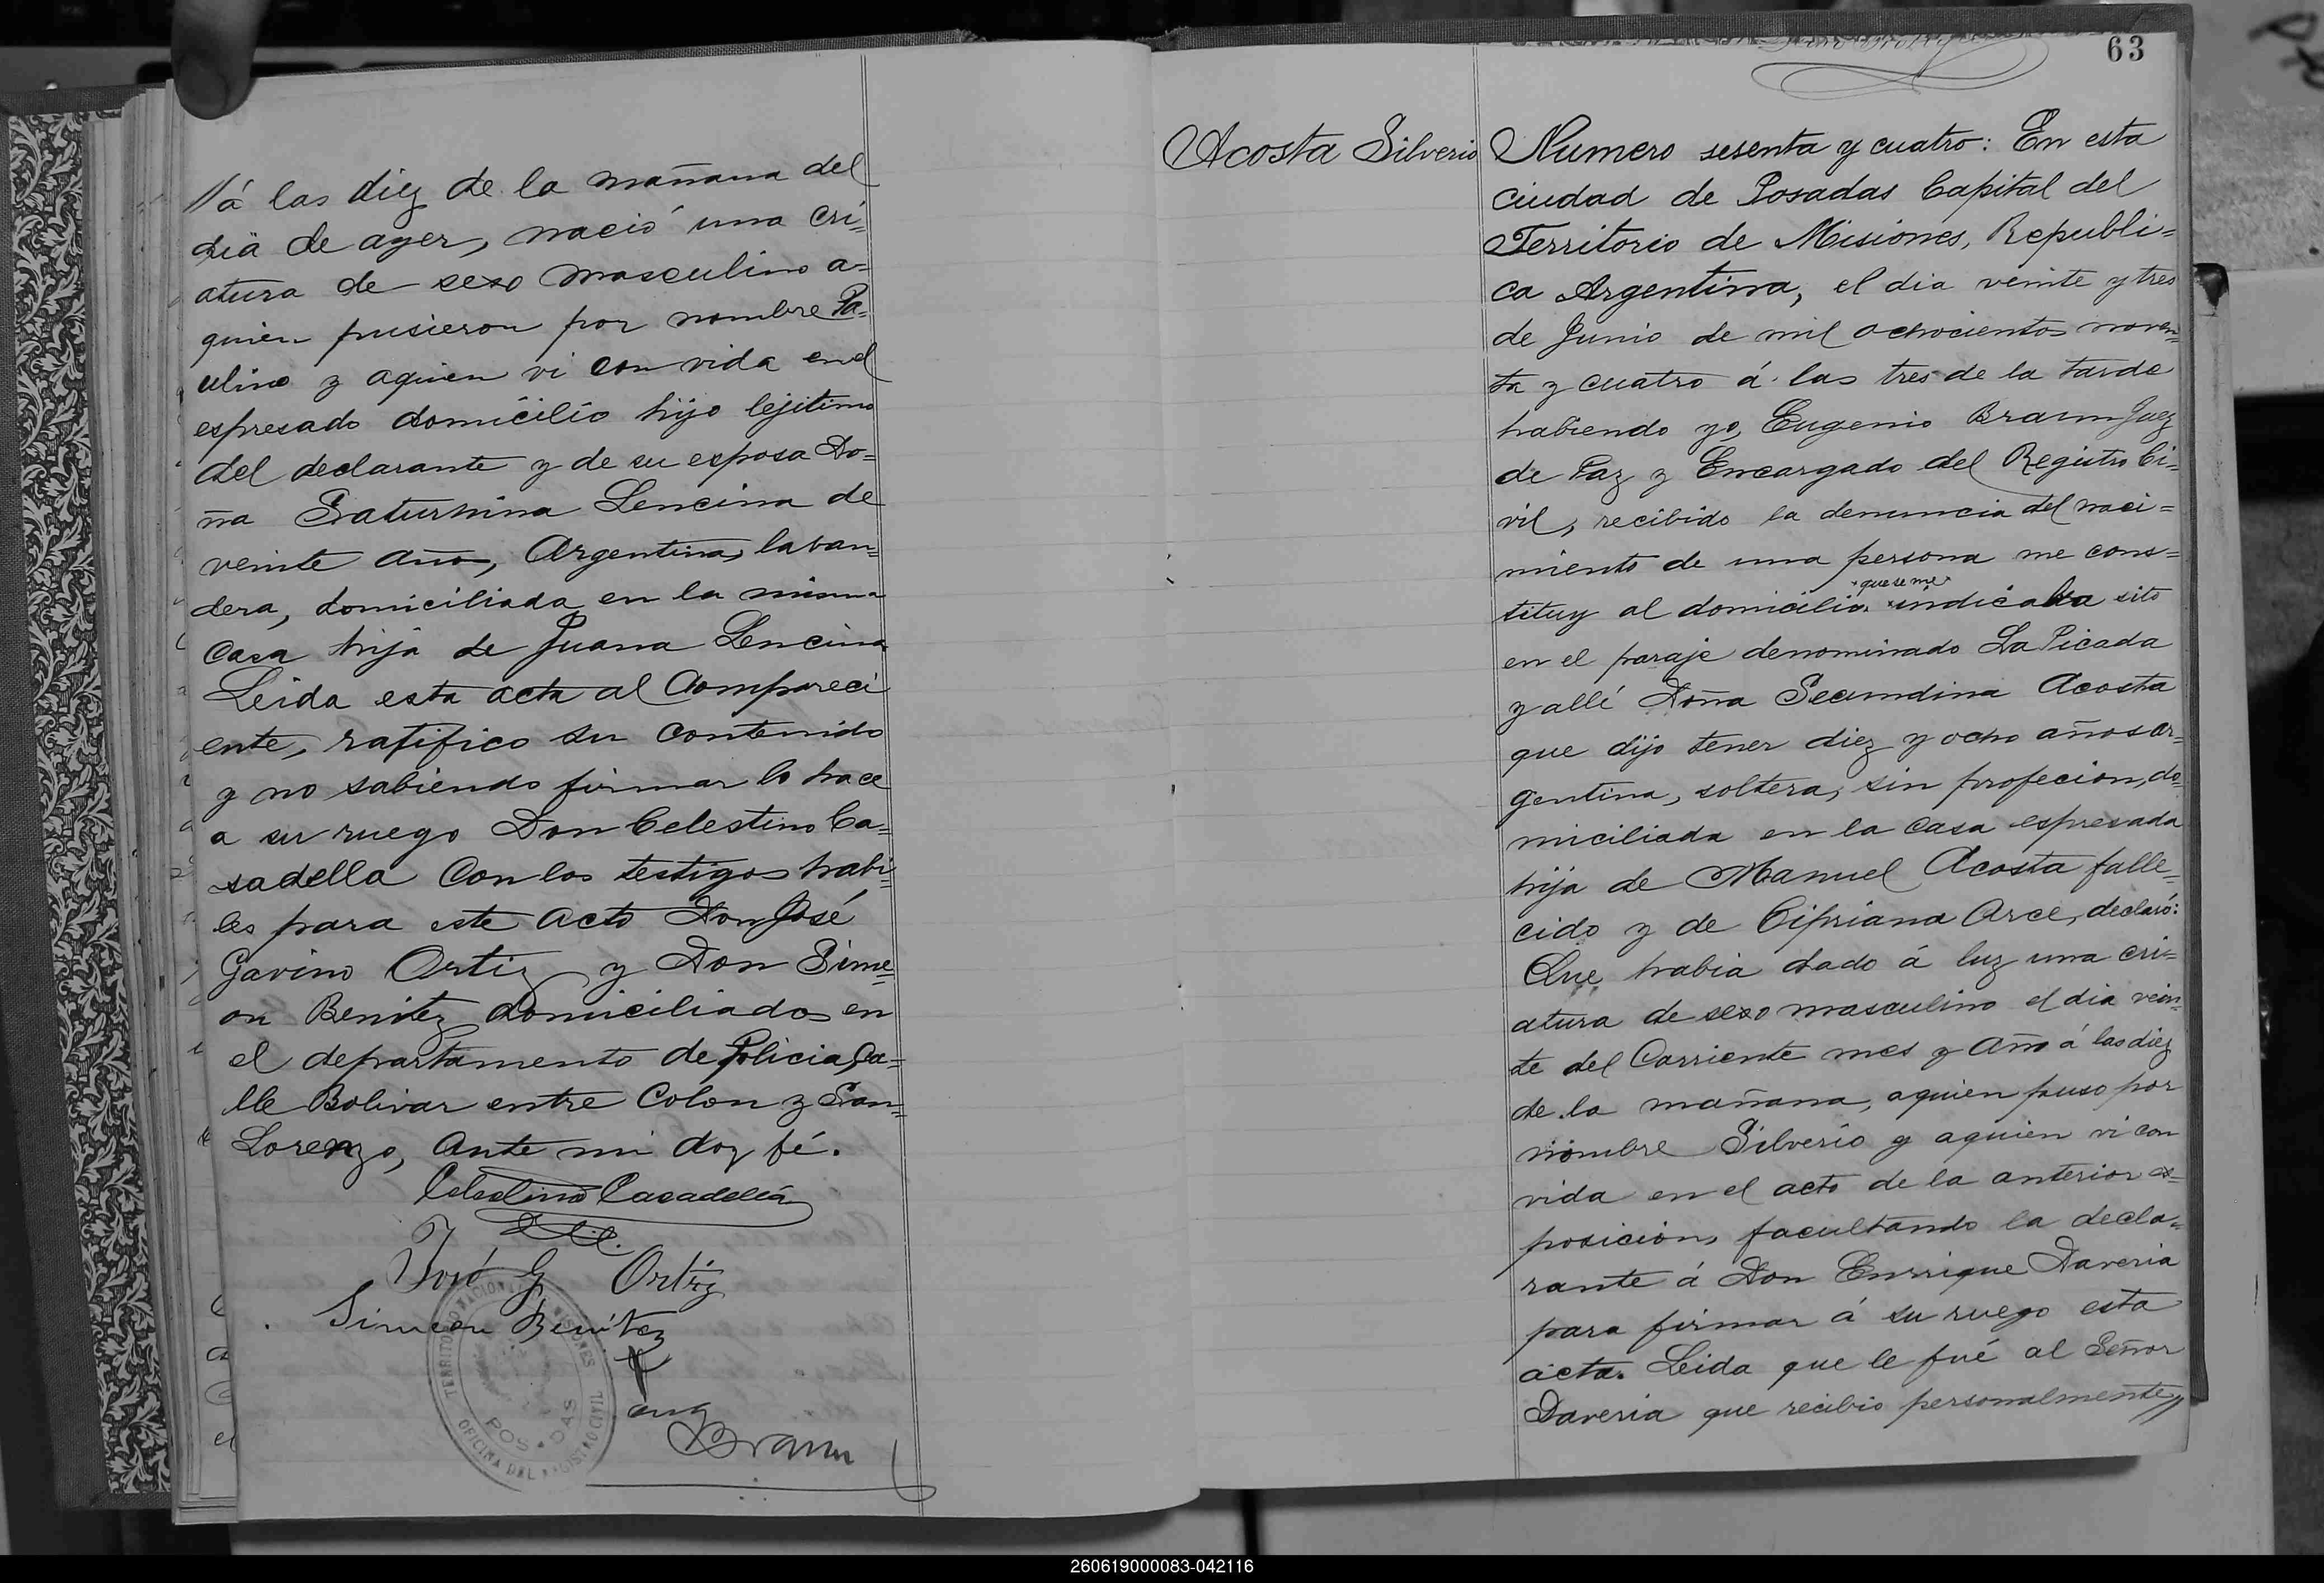 á las diez de la mañana del
dia de ayer, nació una cri=
atura de sexo masculino a=
quien pusieron por nombre Pa=
ulino y aquien vi con vida en el
espresado domicilio hijo lejitimo
del declarante y de su esposa Do=
ña Saturnina Lencina de
veinte año, Argentina, lavan=
dera, domiciliada en la misma
casa hija de Juana Lencina
Leida esta acta al Compareci
ente, ratifico su contenido
y no sabiendo firmar lo hace
a su ruego Don Celestino Ca=
sadella Con los testigos habi=
les para este acto Don José
Gavino Ortiz y Don Sime=
on Benitez domiciliados en
el departamento de Policia, Ca=
lle Bolivar entre Colon y San=
Lorenzo, Ante mi doy fé.
Celestino Casadella
José G Ortiz
Simeon Benitez
Eug
Braun
TERRITORIO NACIONAL DE MISIONES
POSADAS
OFICINA DEL REGISTRO CIVIL
63
Acosta Silverio
Numero sesenta y cuatro: En esta
ciudad de Posadas Capital del
Territorio de Misiones, Republi=
ca Argentina, el dia veinte y tres
de Junio de mil ochocientos noven=
ta y cuatro á las tres de la tarde
habiendo yo, Eugenio Braun Juez
de Paz y Encargado del Registro Ci=
vil, recibido la denuncia del naci=
miento de una persona me cons=
que se me
tituy al domicilio indicaba sito
en el paraje denominado La Picada
y allí Doña Secundina Acosta
que dijo tener diez y ocho años ar=
gentina, soltera, sin profecion, do=
miciliada en la casa espresada
hija de Manuel Acosta falle=
cido y de Cipriana Arce, declaró:
Que habia dado á luz una cri=
atura de sexo masculino el dia vein=
te del Corriente mes y Año á las diez
de la mañana, aquien puso por
nombre Silverio y aquien vi con
vida en el acto de la anterior es=
posicion, facultando la decla=
rante á Don Enrique Daveria
para firmar á su ruego esta
acta. Leida que le fué al Señor
Daveria que recibio personalmente
260619000083-042116